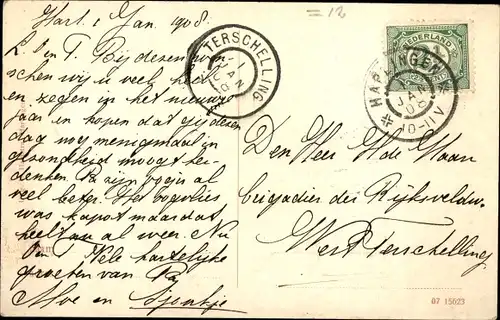 Harl. 1 Jan. 1908.
= 12
L. O en T. Bij dezen wen
schen wij u veel heil
en zegen in het nieuwe
jaar in hopen dat gij dezen
dag nog menigmaal in
gezondheid moogt her-
denken. Pa zijn oogis al
veel beter. Het oogvlies
was kapot maar dat
heelt nu al weer. Nu
Vele hartelijke
groeten van Pa
Moe en Sjentje
TERSCHELLING
1
JAN
08
NEDERLAND
HARLINGEN
JAN
08
10-11V
Den Heer H de Haan
brigadier der Rijksveldw.
West Terschelling
07 15623